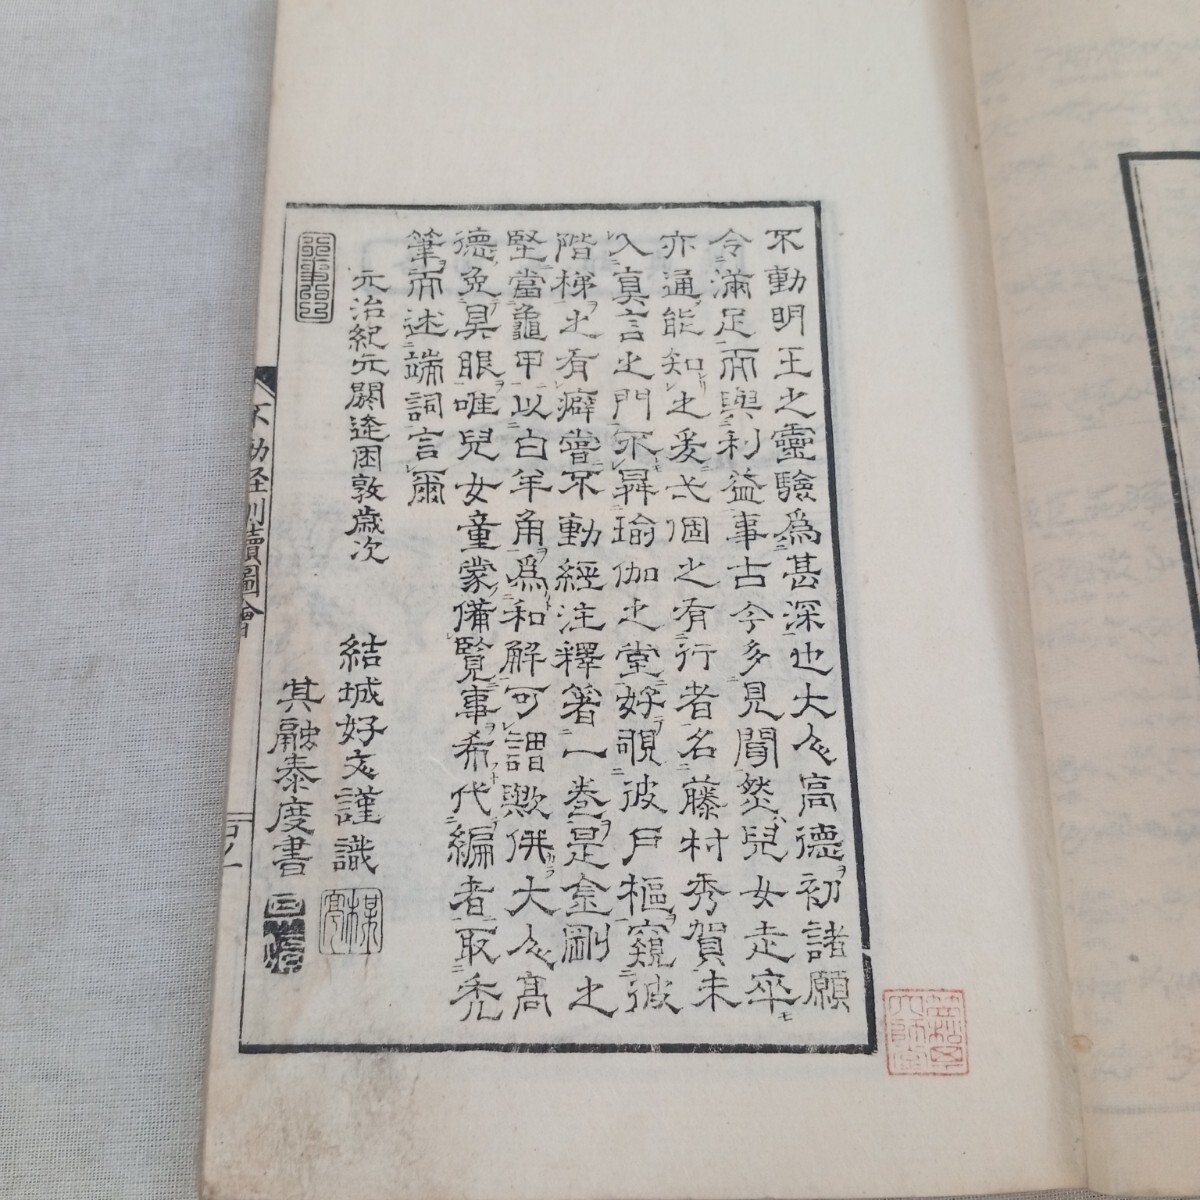 不動明王之靈驗爲甚深也大人高德初諸願
令滿足而與利益事古今多見聞然兒女走卒
亦通能知之爰一個之有行者名藤村秀賀未
入眞言之門不昇瑜伽之堂好覗彼戶樞窺彼
階梯之有癖嘗不動經注釋著一卷是金剛之
堅當龜甲以白羊角爲和解可謂歟併大人高
德免昊眼唯兒女童蒙備覽事希代編者取禿
筆而述端詞言爾
元治紀元閼逢困敦歲次
結城好文謹識
其融泰度書
不動経訓讀圖會